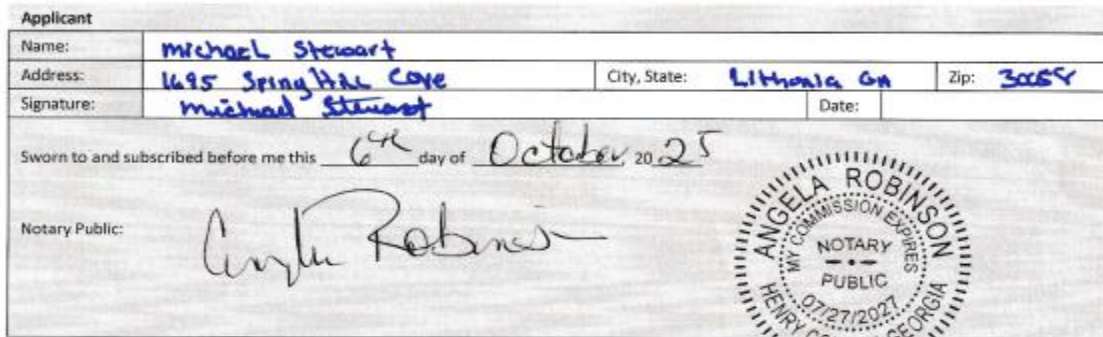 Applicant
Name: Michael Stewart
Address: 1695 Spring Hill Cove City, State: Lithonia GA Zip: 30058
Signature: Michael Stewart Date:
Sworn to and subscribed before me this 6th day of October, 20 25
Notary Public: Angela Robinson
ANGELA ROBINSON
MY COMMISSION EXPIRES
NOTARY
PUBLIC
07/27/2027
HENRY GEORGIA